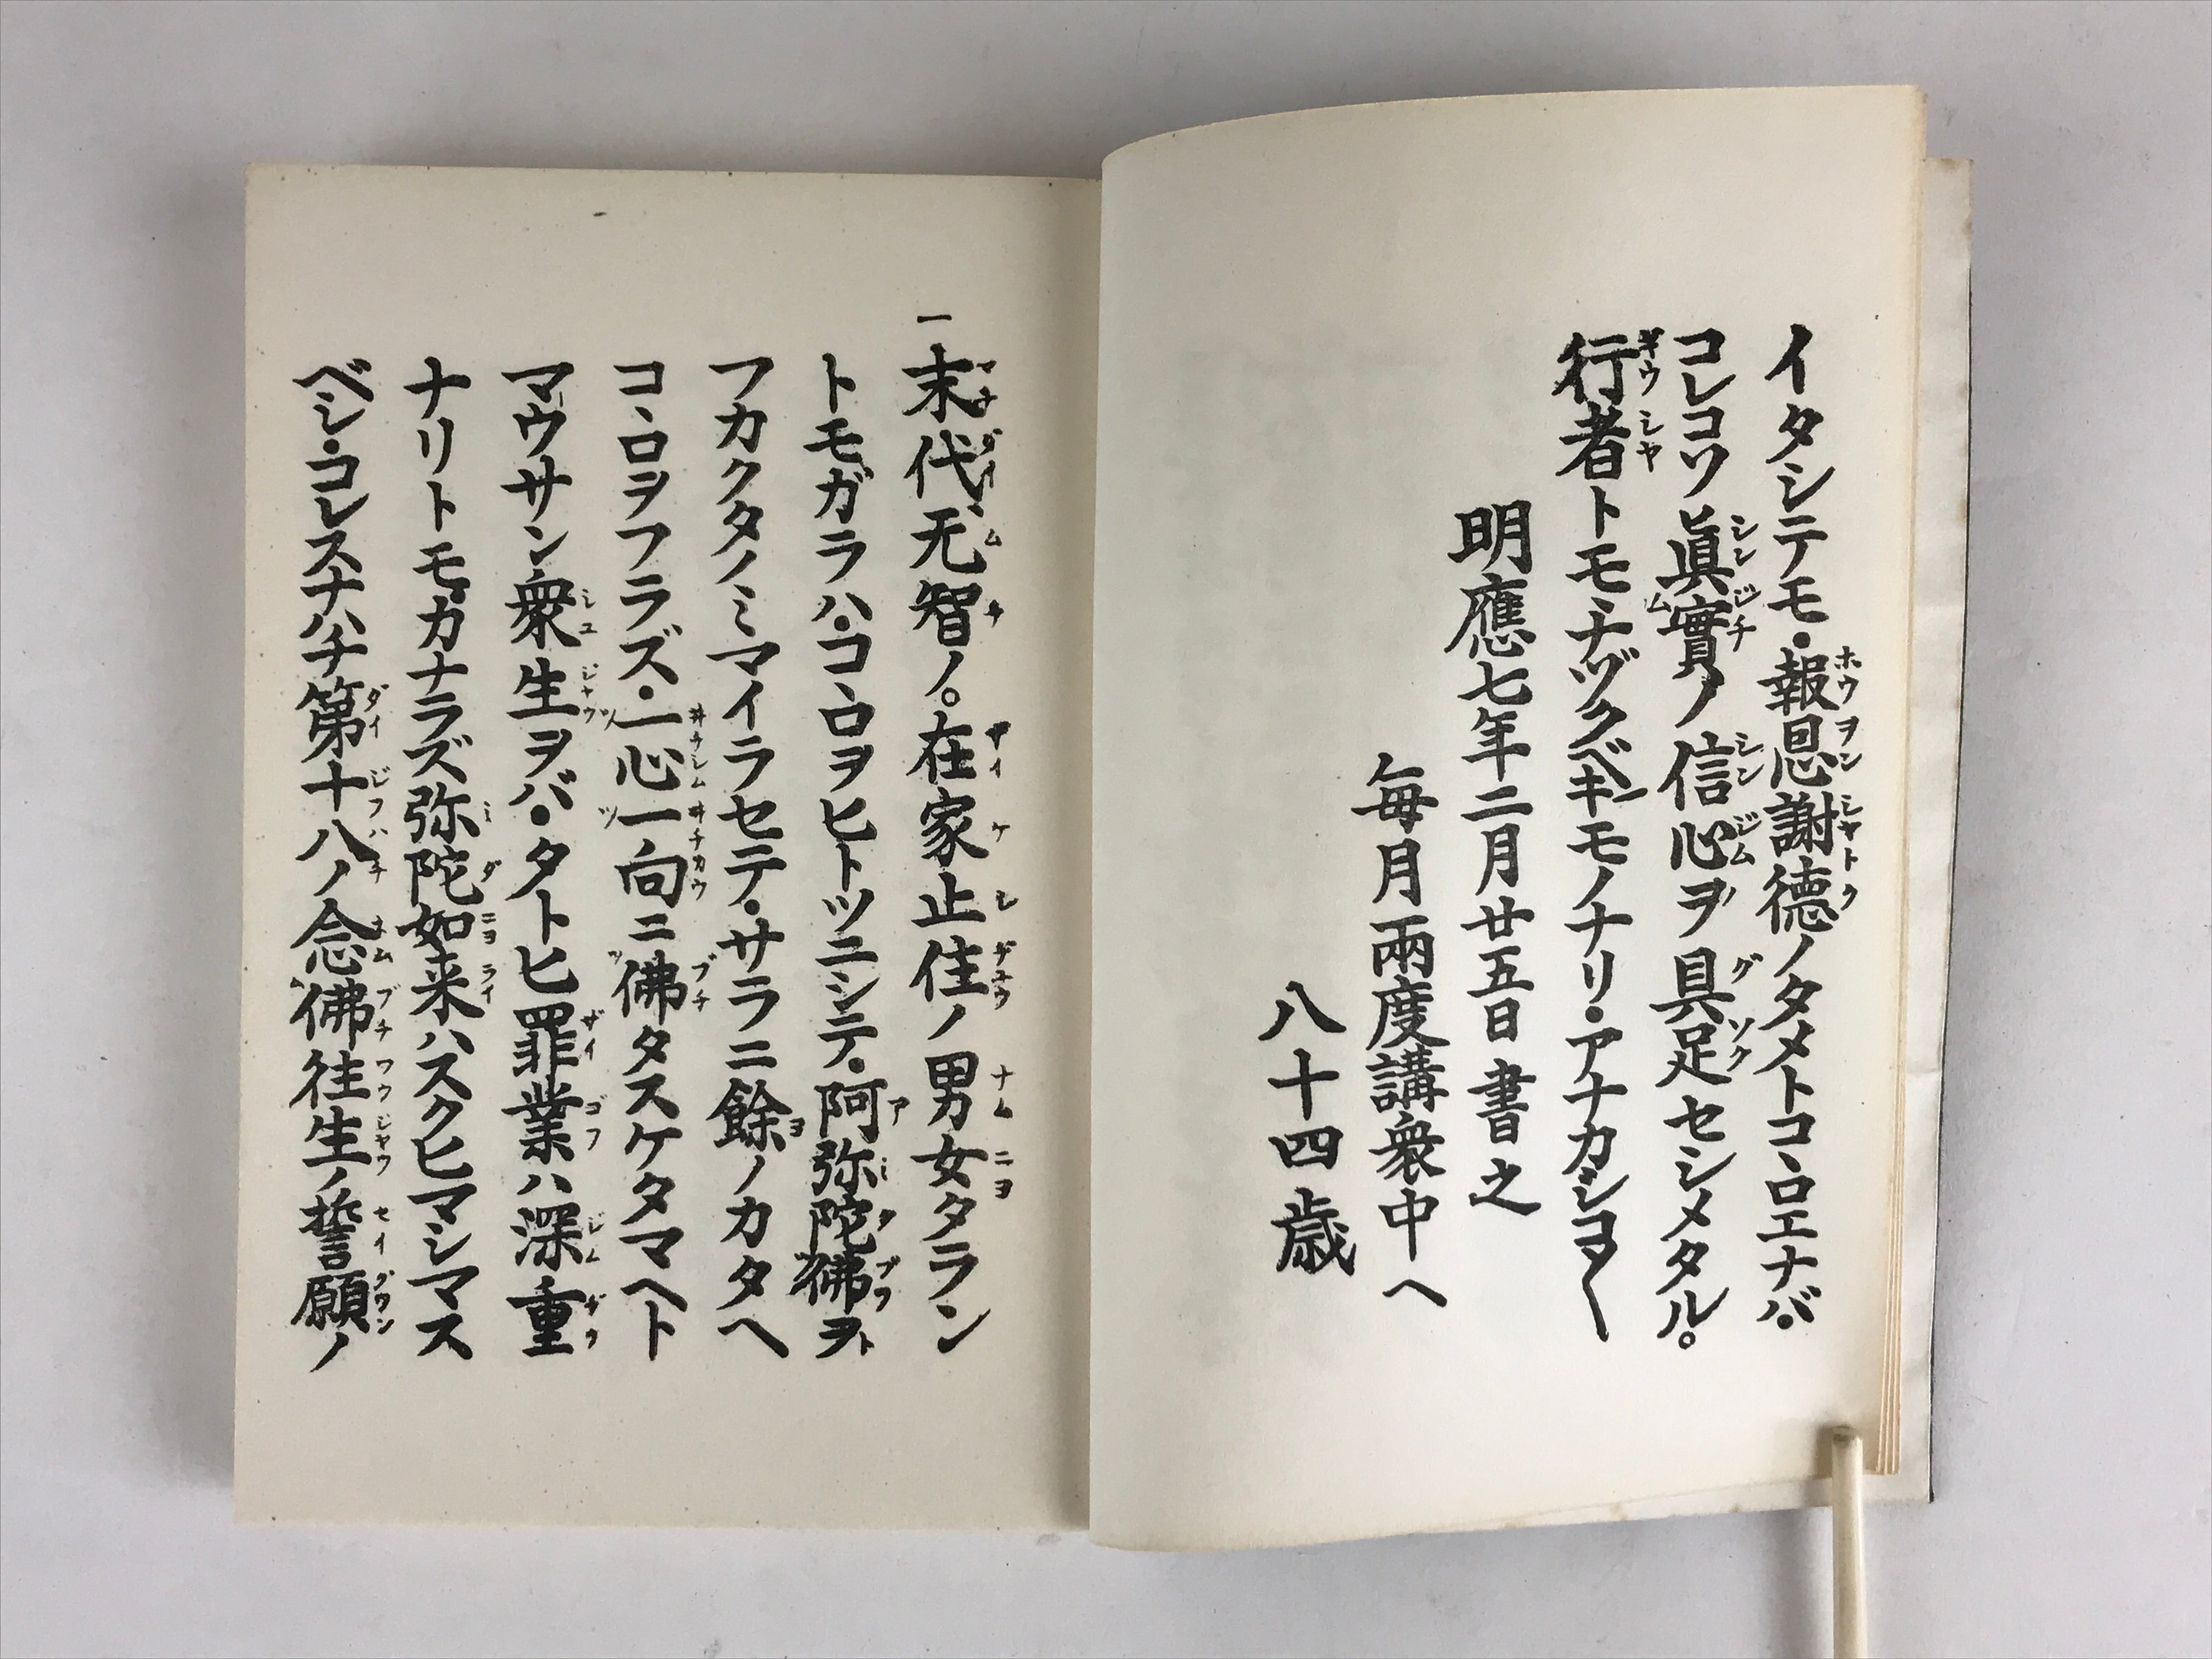 イタシテモ・報恩謝徳ノタメトコヽロエナバ・
コレコソ眞實ノ信心ヲ具足セシメタル。
行者トモ・ナヅクベキモノナリ・アナカシコ〱
明應七年二月廿五日書之
毎月兩度講衆中ヘ
八十四歳
一末代无智ノ。在家止住ノ男女タラン
トモガラハ・コヽロヲヒトツニシテ・阿弥陀佛ヲ
フカクタノミマイラセテ・サラニ餘ノカタヘ
コヽロヲフラズ・一心一向ニ佛タスケタマヘト
マウサン衆生ヲバ・タトヒ罪業ハ深重
ナリトモ・カナラズ弥陀如来ハスクヒマシマス
ベシ・コレスナハチ第十八ノ念佛往生ノ誓願ノ